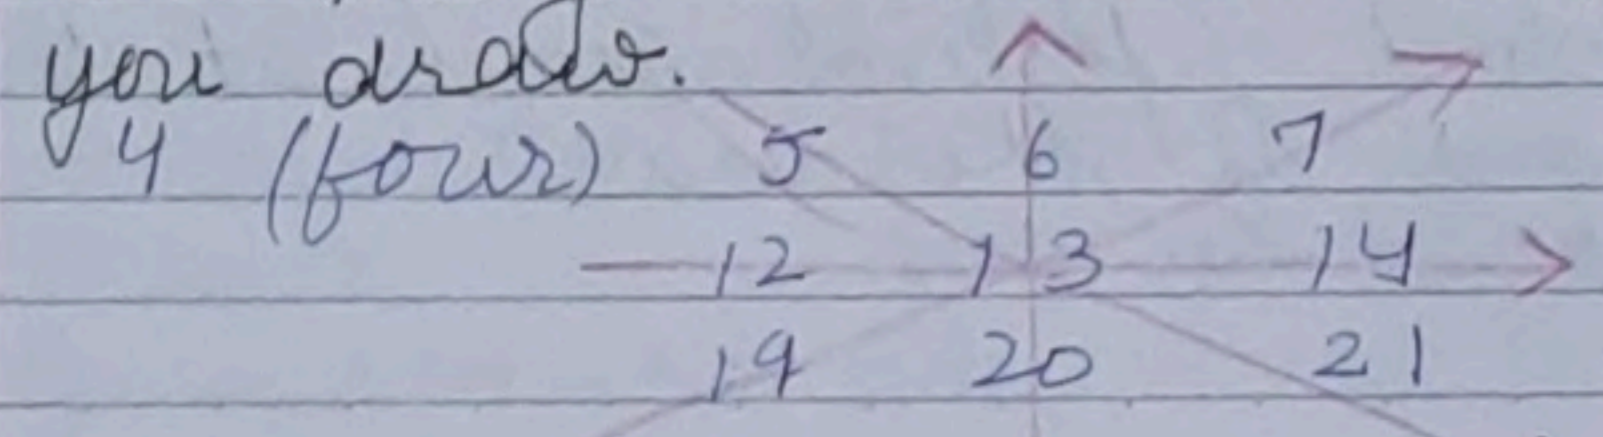 you draw.
4 (four) 5 6 7
12 13 14
19 20 21